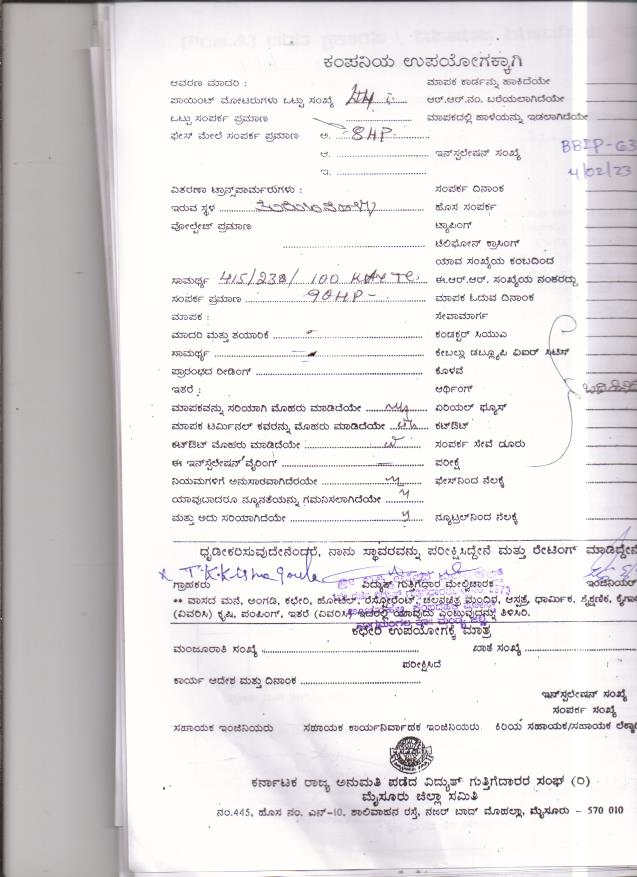 ಕಂಪನಿಯ ಉಪಯೋಗಕ್ಕಾಗಿ
ಆವರಣ ಮಾದರಿ :
ಮಾಪಕ ಕಾರ್ಡನ್ನು ಹಾಕಿದೆಯೇ
ಪಾಯಿಂಟ್ ಮೋಟರುಗಳು ಒಟ್ಟು ಸಂಖ್ಯೆ
ಆರ್.ಆರ್.ನಂ. ಬರೆಯಲಾಗಿದೆಯೇ
ಒಟ್ಟು ಸಂಪರ್ಕ ಪ್ರಮಾಣ
ಮಾಪಕದಲ್ಲಿ ಹಾಳೆಯನ್ನು ಇಡಲಾಗಿದೆಯೇ
ಫೇಸ್ ಮೇಲೆ ಸಂಪರ್ಕ ಪ್ರಮಾಣ ಅ. 8HP
ಆ.
ಇನ್‌ಸ್ಟಲೇಷನ್ ಸಂಖ್ಯೆ
BBIP-63
ಇ.
4/02/23
ವಿತರಣಾ ಟ್ರಾನ್ಸ್‌ಫಾರ್ಮರುಗಳು :
ಸಂಪರ್ಕ ದಿನಾಂಕ
ಇರುವ ಸ್ಥಳ
ಹೊಸ ಸಂಪರ್ಕ
ವೋಲ್ಟೇಜ್ ಪ್ರಮಾಣ
ಟ್ಯಾಪಿಂಗ್
ಟೆಲಿಫೋನ್ ಕ್ರಾಸಿಂಗ್
ಯಾವ ಸಂಖ್ಯೆಯ ಕಂಬದಿಂದ
ಸಾಮರ್ಥ್ಯ 415/230/ 100 KVA TC
ಈ.ಆರ್.ಆರ್. ಸಂಖ್ಯೆಯ ನಂತರದ್ದು
ಸಂಪರ್ಕ ಪ್ರಮಾಣ 90HP-
ಮಾಪಕ ಓದುವ ದಿನಾಂಕ
ಮಾಪಕ :
ಸೇವಾಮಾರ್ಗ
ಮಾದರಿ ಮತ್ತು ತಯಾರಿಕೆ
ಕಂಡಕ್ಟರ್ ಸಿಯುಎ
ಸಾಮರ್ಥ್ಯ
ಕೇಬಲ್ಲು ಡಬ್ಲ್ಯೂಪಿ ವಿಐಆರ್ ಸಿಟಿಸ್
ಪ್ರಾರಂಭದ ರೀಡಿಂಗ್
ಕೊಳವೆ
ಇತರೆ :
ಆರ್ಥಿಂಗ್
ಮಾಪಕವನ್ನು ಸರಿಯಾಗಿ ಮೊಹರು ಮಾಡಿದೆಯೇ
ಏರಿಯಲ್ ಫ್ಯೂಸ್
ಮಾಪಕ ಟರ್ಮಿನಲ್ ಕವರನ್ನು ಮೊಹರು ಮಾಡಿದೆಯೇ
ಕಟ್‌ಔಟ್
ಕಟ್‌ಔಟ್ ಮೊಹರು ಮಾಡಿದೆಯೇ
ಸಂಪರ್ಕ ಸೇವೆ ದೂರು
ಈ ಇನ್‌ಸ್ಟಲೇಷನ್ ವೈರಿಂಗ್
ಪರೀಕ್ಷೆ
ನಿಯಮಗಳಿಗೆ ಅನುಸಾರವಾಗಿದೆರಯೇ
ಫೇಸ್‌ನಿಂದ ನೆಲಕ್ಕೆ
ಯಾವುಬಾದರೂ ನ್ಯೂನತೆಯನ್ನು ಗಮನಿಸಲಾಗಿದೆಯೇ
ಮತ್ತು ಅದು ಸರಿಯಾಗಿದೆಯೇ
ನ್ಯೂಟ್ರಲ್‌ನಿಂದ ನೆಲಕ್ಕೆ
ಧೃಡೀಕರಿಸುವುದೇನೆಂದರೆ, ನಾನು ಸ್ಥಾವರವನ್ನು ಪರೀಕ್ಷಿಸಿದ್ದೇನೆ ಮತ್ತು ರೇಟಿಂಗ್ ಮಾಡಿದ್ದೇನೆ
T.K.Krishnagowda
ಗ್ರಾಹಕರು
ವಿದ್ಯುತ್ ಗುತ್ತಿಗೆದಾರ ಮೇಲ್ವಿಚಾರಕ
ಇಂಜಿನಿಯರ್
** ವಾಸದ ಮನೆ, ಅಂಗಡಿ, ಕಛೇರಿ, ಹೋಟೆಲ್, ರೆಸ್ಟೋರೆಂಟ್, ಚಲನಚಿತ್ರ ಮಂದಿರ, ಆಸ್ಪತ್ರೆ, ಧಾರ್ಮಿಕ, ಶೈಕ್ಷಣಿಕ,
(ವಿವರಿಸಿ) ಕೃಷಿ, ಪಂಪಿಂಗ್, ಇತರೆ (ವಿವರಿಸಿ) ಇದರಲ್ಲಿ ಯಾವುದು ಎಂಬುವುದನ್ನು ತಿಳಿಸಿರಿ.
ಕಛೇರಿ ಉಪಯೋಗಕ್ಕೆ ಮಾತ್ರ
ಮಂಜೂರಾತಿ ಸಂಖ್ಯೆ
ಖಾತೆ ಸಂಖ್ಯೆ
ಪರೀಕ್ಷಿಸಿದೆ
ಕಾರ್ಯ ಆದೇಶ ಮತ್ತು ದಿನಾಂಕ
ಇನ್‌ಸ್ಟಲೇಷನ್ ಸಂಖ್ಯೆ
ಸಂಪರ್ಕ ಸಂಖ್ಯೆ
ಸಹಾಯಕ ಇಂಜಿನಿಯರು ಸಹಾಯಕ ಕಾರ್ಯನಿರ್ವಾಹಕ ಇಂಜಿನಿಯರು ಕಿರಿಯ ಸಹಾಯಕ/ಸಹಾಯಕ
ಕರ್ನಾಟಕ ರಾಜ್ಯ ಅನುಮತಿ ಪಡೆದ ವಿದ್ಯುತ್ ಗುತ್ತಿಗೆದಾರರ ಸಂಘ (ರಿ)
ಮೈಸೂರು ಜಿಲ್ಲಾ ಸಮಿತಿ
ನಂ.445, ಹೊಸ ನಂ. ಎನ್-10, ಶಾಲಿವಾಹನ ರಸ್ತೆ, ನಜರ್ ಬಾದ್ ಮೊಹಲ್ಲಾ, ಮೈಸೂರು - 570 010